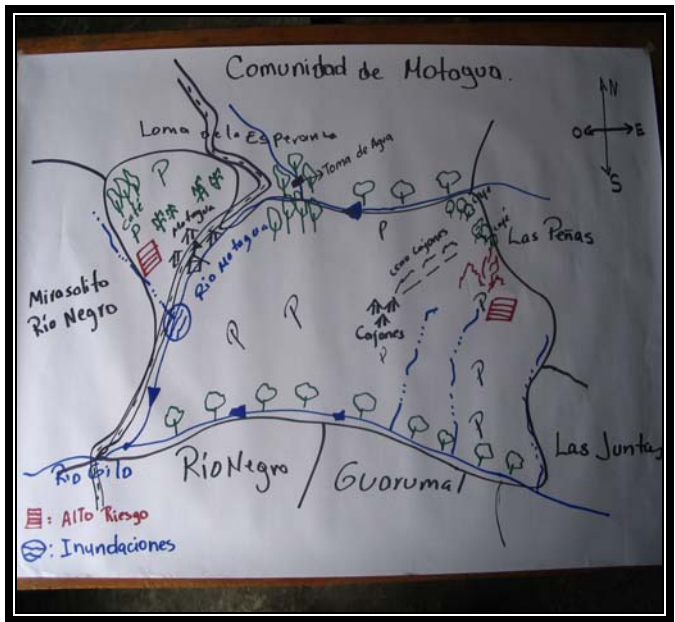 Comunidad de Motagua.
N
O E
S
Loma de la Esperanza
Toma de Agua
P
Café
P
Motagua
Río Motagua
P
Café
Café
Las Peñas
Cerro Cajones
Mirasolito
Río Negro
P
P
P
Cajones
P
P
P
Las Juntas
Río Gila
Río Negro
Guarumal
: Alto Riesgo
: Inundaciones